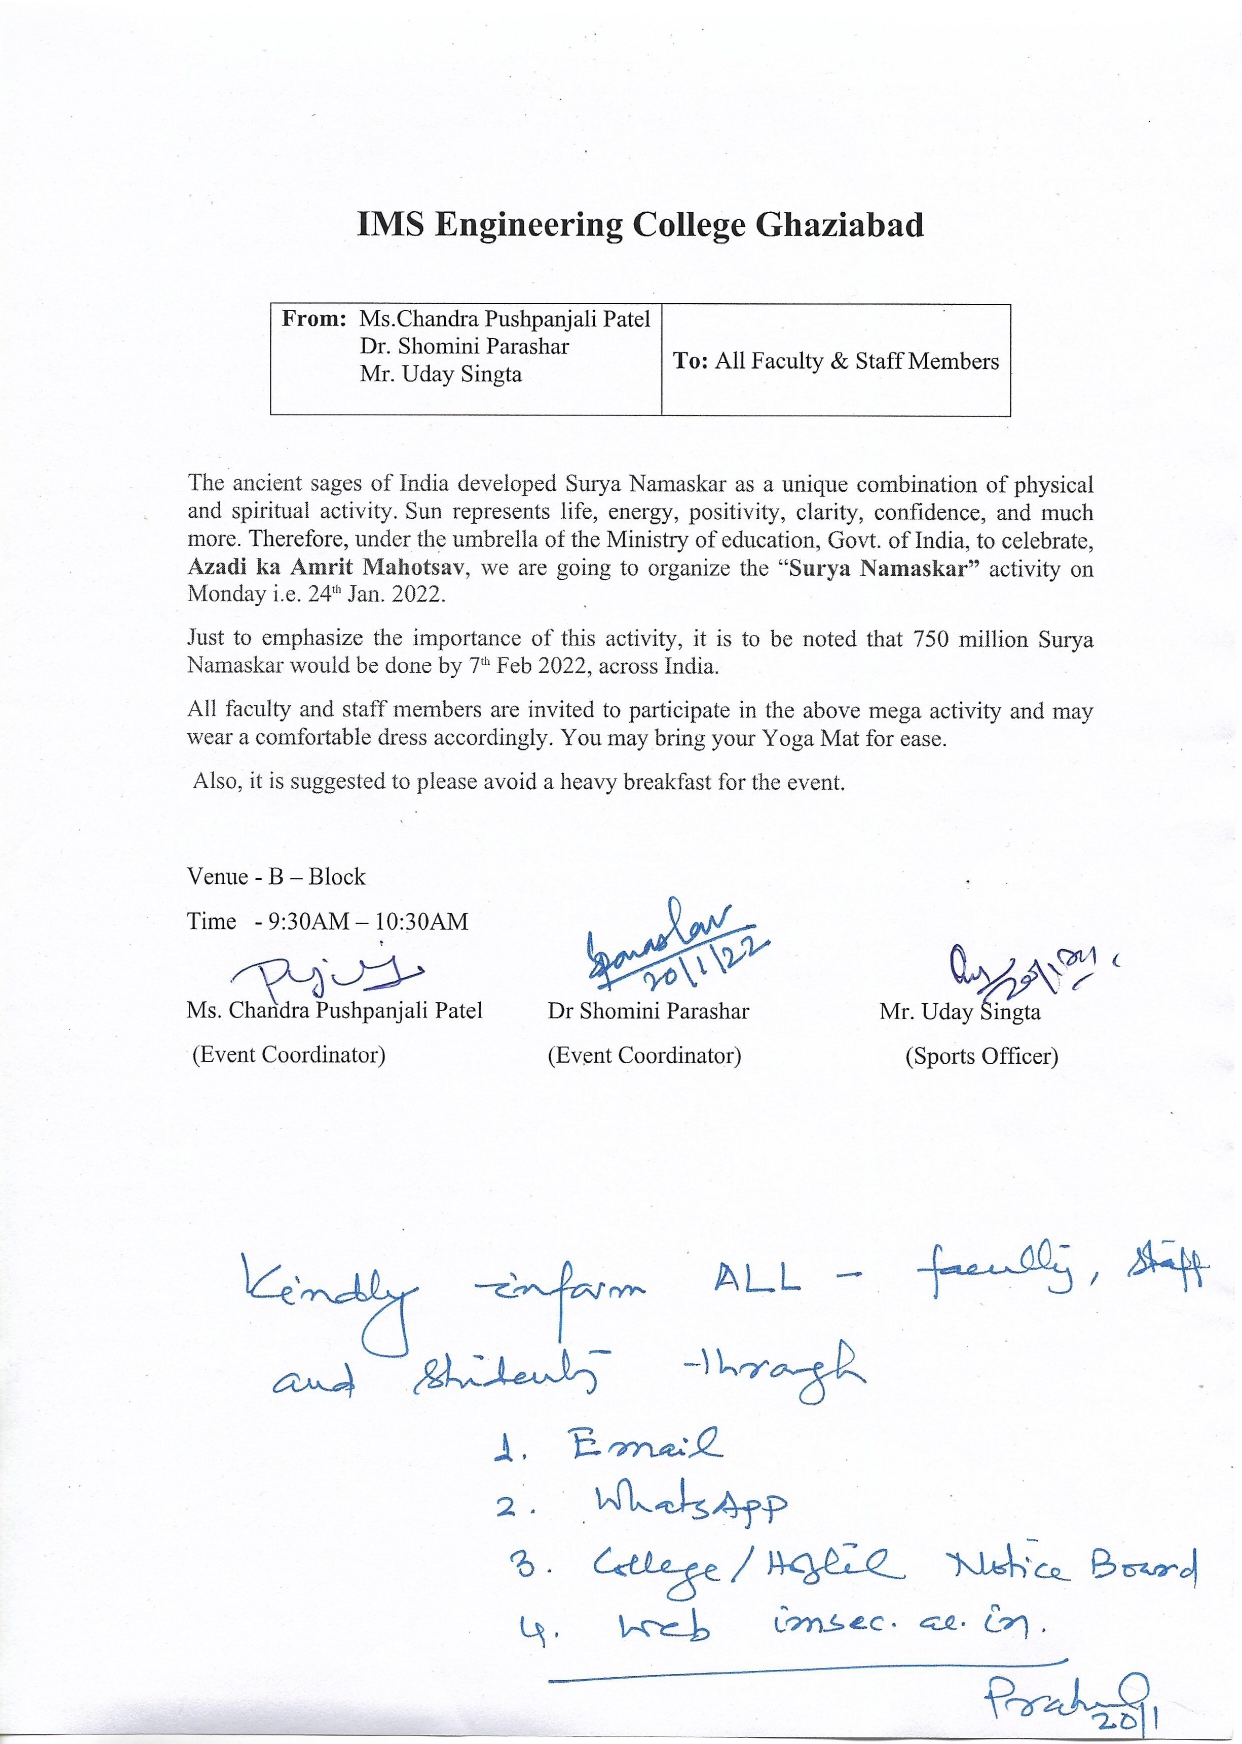 IMS Engineering College Ghaziabad
From: Ms.Chandra Pushpanjali Patel
Dr. Shomini Parashar
Mr. Uday Singta
To: All Faculty & Staff Members
The ancient sages of India developed Surya Namaskar as a unique combination of physical
and spiritual activity. Sun represents life, energy, positivity, clarity, confidence, and much
more. Therefore, under the umbrella of the Ministry of education, Govt. of India, to celebrate,
Azadi ka Amrit Mahotsav, we are going to organize the “Surya Namaskar” activity on
Monday i.e. 24th Jan. 2022.
Just to emphasize the importance of this activity, it is to be noted that 750 million Surya
Namaskar would be done by 7th Feb 2022, across India.
All faculty and staff members are invited to participate in the above mega activity and may
wear a comfortable dress accordingly. You may bring your Yoga Mat for ease.
Also, it is suggested to please avoid a heavy breakfast for the event.
Venue - B – Block
Time - 9:30AM – 10:30AM
20/1/22
Ms. Chandra Pushpanjali Patel Dr Shomini Parashar Mr. Uday Singta
(Event Coordinator) (Event Coordinator) (Sports Officer)
Kindly inform ALL - faculty, staff
and students through
1. Email
2. WhatsApp
3. College/Hostel Notice Board
4. Web imsec.ac.in.
20/1